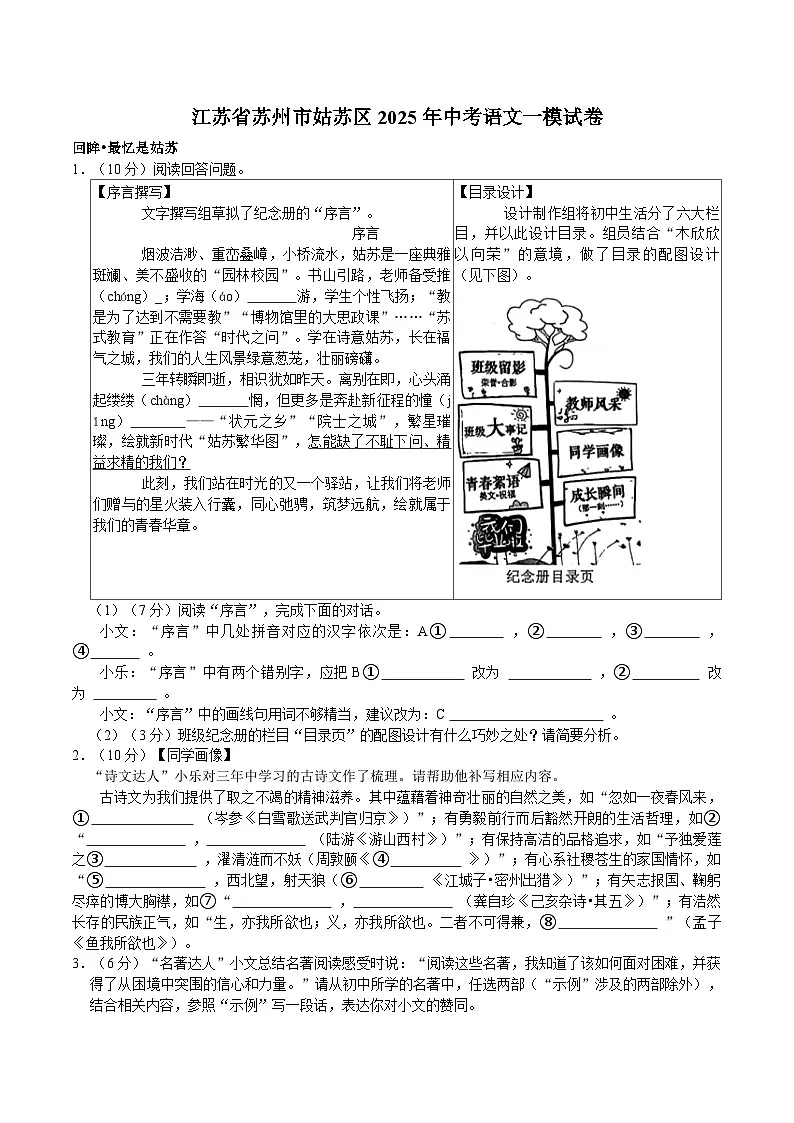 江苏省苏州市姑苏区 2025 年中考语文一模试卷
回眸•最忆是姑苏
1．（10 分）阅读回答问题。
【序言撰写】
文字撰写组草拟了纪念册的“序言”。
序言
烟波浩渺、重峦叠嶂，小桥流水，姑苏是一座典雅
斑斓、美不盛收的“园林校园”。书山引路，老师备受推
（chóng）_；学海（áo）_______游，学生个性飞扬；“教
是为了达到不需要教”“博物馆里的大思政课”……“苏
式教育”正在作答“时代之问”。学在诗意姑苏，长在福
气之城，我们的人生风景绿意葱茏，壮丽磅礴。
三年转瞬即逝，相识犹如昨天。离别在即，心头涌
起缕缕（chàng）_______惘，但更多是奔赴新征程的憧（j
ǐng）________——“状元之乡”“院士之城”，繁星璀
璨，绘就新时代“姑苏繁华图”，怎能缺了不耻下问、精
益求精的我们？
此刻，我们站在时光的又一个驿站，让我们将老师
们赠与的星火装入行囊，同心弛骋，筑梦远航，绘就属于
我们的青春华章。
【目录设计】
设计制作组将初中生活分了六大栏
目，并以此设计目录。组员结合“木欣欣
以向荣”的意境，做了目录的配图设计
（见下图）。
班级留影
荣誉•合影
教师风采
班级大事记
同学画像
青春絮语
美文•祝福
成长瞬间
（那一刻……）
纪念册目录页
（1）（7 分）阅读“序言”，完成下面的对话。
小文：“序言”中几处拼音对应的汉字依次是：A①________ ，②________ ，③________ ，
④_______ 。
小乐：“序言”中有两个错别字，应把 B①____________ 改为 ____________ ，②__________ 改
为 _________ 。
小文：“序言”中的画线句用词不够精当，建议改为：C ______________________ 。
（2）（3 分）班级纪念册的栏目“目录页”的配图设计有什么巧妙之处？请简要分析。
2．（10 分）【同学画像】
“诗文达人”小乐对三年中学习的古诗文作了梳理。请帮助他补写相应内容。
古诗文为我们提供了取之不竭的精神滋养。其中蕴藉着神奇壮丽的自然之美，如“忽如一夜春风来，
①______________ （岑参《白雪歌送武判官归京》）”；有勇毅前行而后豁然开朗的生活哲理，如②
“______________ ，______________ （陆游《游山西村》）”；有保持高洁的品格追求，如“予独爱莲
之③______________ ，濯清涟而不妖（周敦颐《④__________ 》）”；有心系社稷苍生的家国情怀，如
“⑤______________ ，西北望，射天狼（⑥_________ 《江城子•密州出猎》）”；有矢志报国、鞠躬
尽瘁的博大胸襟，如⑦“______________ ，______________ （龚自珍《己亥杂诗•其五》）”；有浩然
长存的民族正气，如“生，亦我所欲也；义，亦我所欲也。二者不可得兼，⑧______________ ”（孟子
《鱼我所欲也》）。
3．（6 分）“名著达人”小文总结名著阅读感受时说：“阅读这些名著，我知道了该如何面对困难，并获
得了从困境中突围的信心和力量。”请从初中所学的名著中，任选两部（“示例”涉及的两部除外），
结合相关内容，参照“示例”写一段话，表达你对小文的赞同。